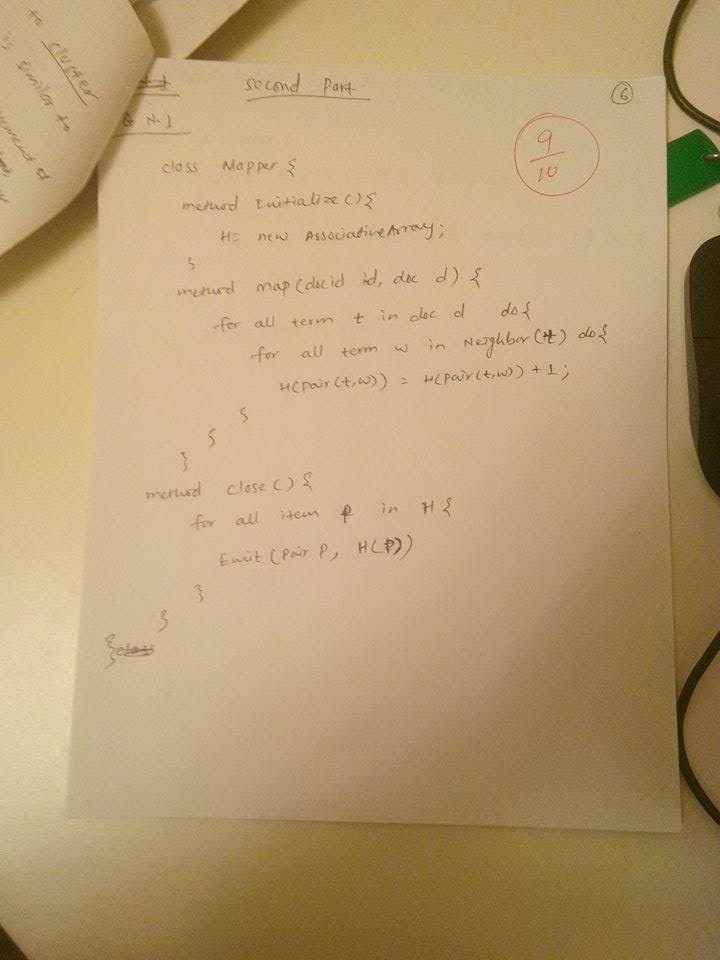 to cluster
is similar to
second Part
6
Q N.1
9
10
class Mapper {
method Initialize () {
H = new AssociativeArray;
}
method map (docid id, doc d) {
for all term t in doc d do {
for all term w in Neighbor (t) do {
H(pair(t,w)) = H(pair(t,w)) + 1;
}
}
}
method close () {
for all item p in H {
Emit (pair P, H(P))
}
}
}